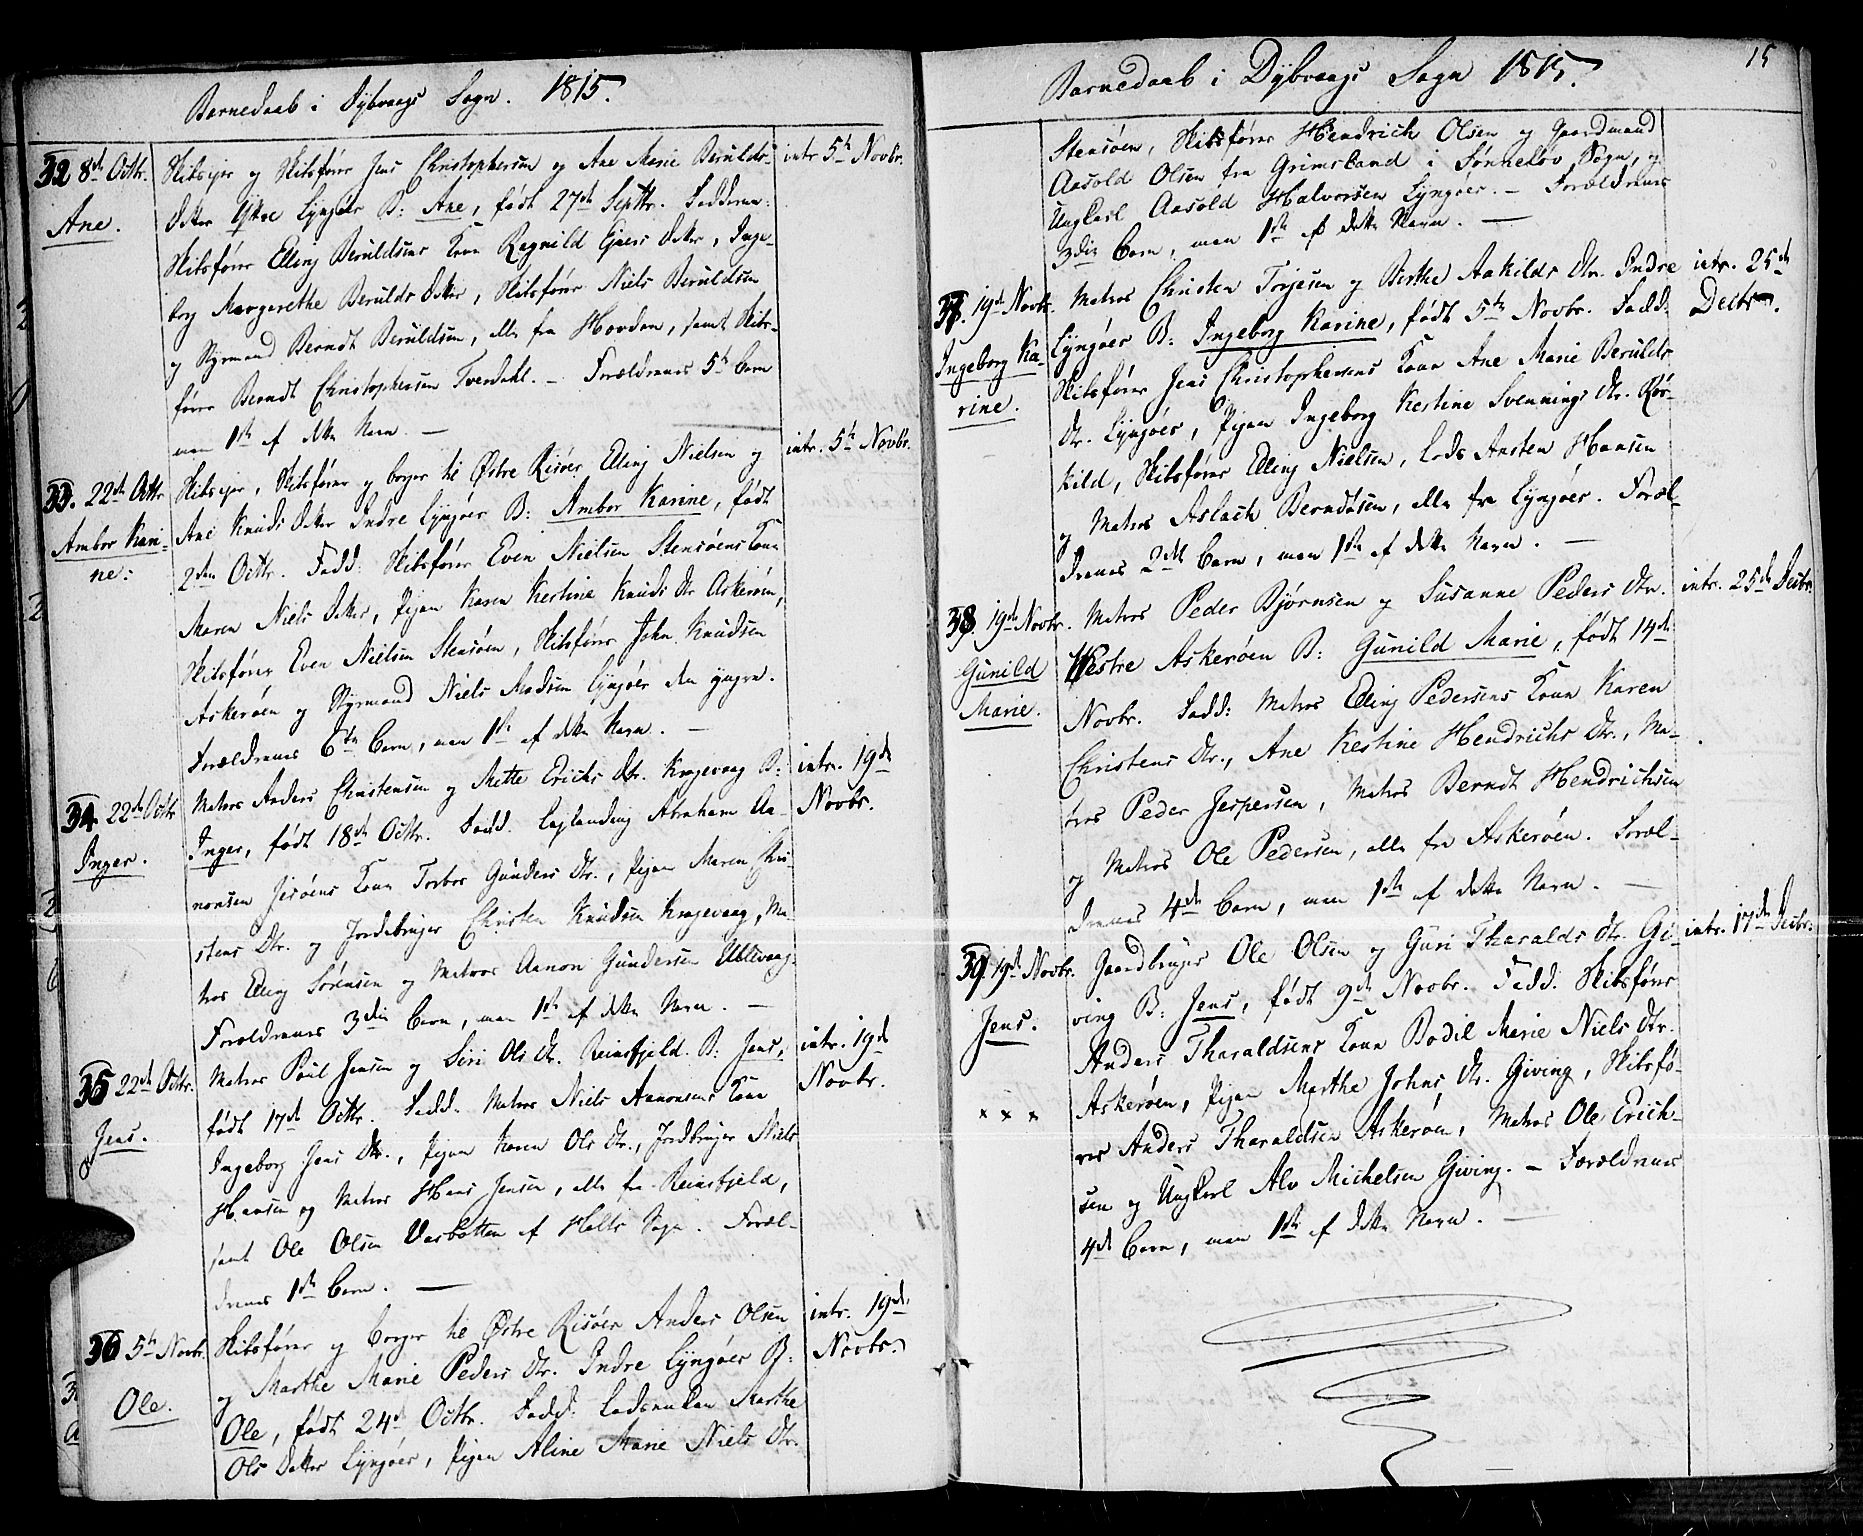 Barnedaab i Dybvaags Sogn. 1815.
32 8de Octbr. Skibsejer og Skibsfører Jens Christophersen og Ane Marie Berulds intr. 5te Novbr.
Ane. Datter Ytre Lyngøer B: Ane, født 27de Septbr. Fadderne:
Skibsfører Elling Beruldsens Kone Ragnild Ejvers Datter, Inge-
borg Margarethe Berulds Datter, Skibsfører Niels Beruldsen
og Styrmand Berndt Beruldsen, alle fra Hovden, samt Skibs-
fører Berndt Christophersen Tverdahl. – Forældrenes 5te Barn
men 1ste af dette Navn. –
33. 22de Octbr. Skibsejer, Skibsfører og borger til Østre Risøer Elling Nielsen og intr. 5te Novbr.
Ambor Kari- Ane Knuds Datter Indre Lyngøer B: Ambor Karine, født
ne: 2den Octbr. Fadd: Skibsfører Even Nielsen Stensøens Kone
Maren Niels Datter, Pigen Karen Kestine Knuds Dtr Askerøen,
Skibsfører Even Nielsen Stensøen, Skibsfører John Knudsen
Askerøen og Styrmand Niels Madsen Lyngøer den yngre.
Forældrenes 6te Barn, men 1ste af dette Navn. –
34 22de Octbr Matros Anders Christensen og Mette Erichs Dtr. Krogevaag B: intr. 19de
Inger. Inger, født 18de Octbr. Fadd. Abraham Aa- Novbr.
nonsen Kone Torbor Gunders Dtr., Pigen Maren Chri-
stens Dtr. og Jordbruger Christen Knudsen Krogevaag, Ma-
tros Elling Sørensen og Matros Aanon Gundersen Ublevaag.
Forældrenes 3die Barn, men 1ste af dette Navn. –
35 22de Octbr. Matros Poul Jensen og Siri Ols Dtr. Reinsfjeld. B: Jens, intr. 19de
Jens. født 17de Octbr. Fadd. Matros Niels Aanonsens Kone Novbr.
Ingeborg Jens Dtr., Pigen Karen Ols Dtr., Jordbruger Niels
Hansen og Matros Hans Jensen, alle fra Reinsfjeld,
samt Ole Olsen Vasbotten af Holts Sogn. Foræl-
drenes 1ste Barn. –
36 5te Novbr. Skibsfører og borger til Østre Risøer Anders Olsen intr. 19de
og Marthe Marie Peders Dtr. Indre Lyngøer B: Novbr.
Ole. Ole, født 24de Octbr. Fadd: Marthe
Ols Datter Lyngøer, Pigen Aline Marie Niels Dtr.
15
Barnedaab i Dybvaags Sogn 1815.
Stensøen, Skibsfører Hendrich Olsen og Gaardmand
Aasold Olsen fra Grimsland i Sønnelov Sogn, og
Ungkarl Aasold Halvorsen Lyngøer. – Forældrenes
3die Barn, men 1ste af dette Navn. –
37. 19de Novbr. Matros Christen Torjesen og Berthe Aakilds Dtr. Indre intr. 25de
Ingeborg Ka- Lyngøer B: Ingeborg Karine, født 5te Novbr. Fadd: Decbr.
rine. Skibsfører Jens Christophersens Kone Ane Marie Berulds
Dtr. Lyngøer, Pigen Ingeborg Kestine Svennings Dtr. Rør-
kild, Skibsfører Elling Nielsen, Lods Ansten Hansen
og Matros Aslach Berndtsen, alle fra Lyngøer. Foræl-
drenes 2det Barn, men 1ste af dette Navn. –
38. 19de Novbr. Matros Peder Bjørnsen og Susanne Peders Dtr. intr. 25de Decbr.
Gunild Westre Askerøen B: Gunild Marie, født 14de
Marie. Novbr. Fadd: Matros Elling Pedersens Kone Karen
Christens Dtr., Ane Kestine Hendrichs Dtr., Ma-
tros Peder Jespersen, Matros Berndt Hendrichsen
og Matros Ole Pedersen, alle fra Askerøen. Foræl-
drenes 4de Barn, men 1ste af dette Navn. –
39. 19de Novbr. Gaardbruger Ole Olsen og Guri Tharalds Dtr. Gi- intr. 17de Decbr.
Jens. ving B: Jens, født 9de Novbr. Fadd. Skibsfører
Anders Tharaldsens Kone Bodil Marie Niels Dtr.
x x x Askerøen, Pigen Marthe Johns Dtr. Giving, Skibsfø-
rer Anders Tharaldsen Askerøen, Matros Ole Erich-
sen og Ungkarl Alv Michelsen Giving. – Forældrenes
4de Barn, men 1ste af dette Navn. –